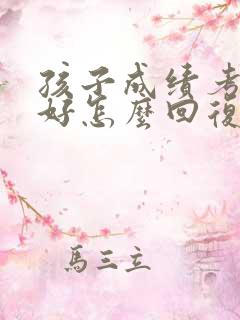 孩子成绩考
好怎麼回復
馬三立